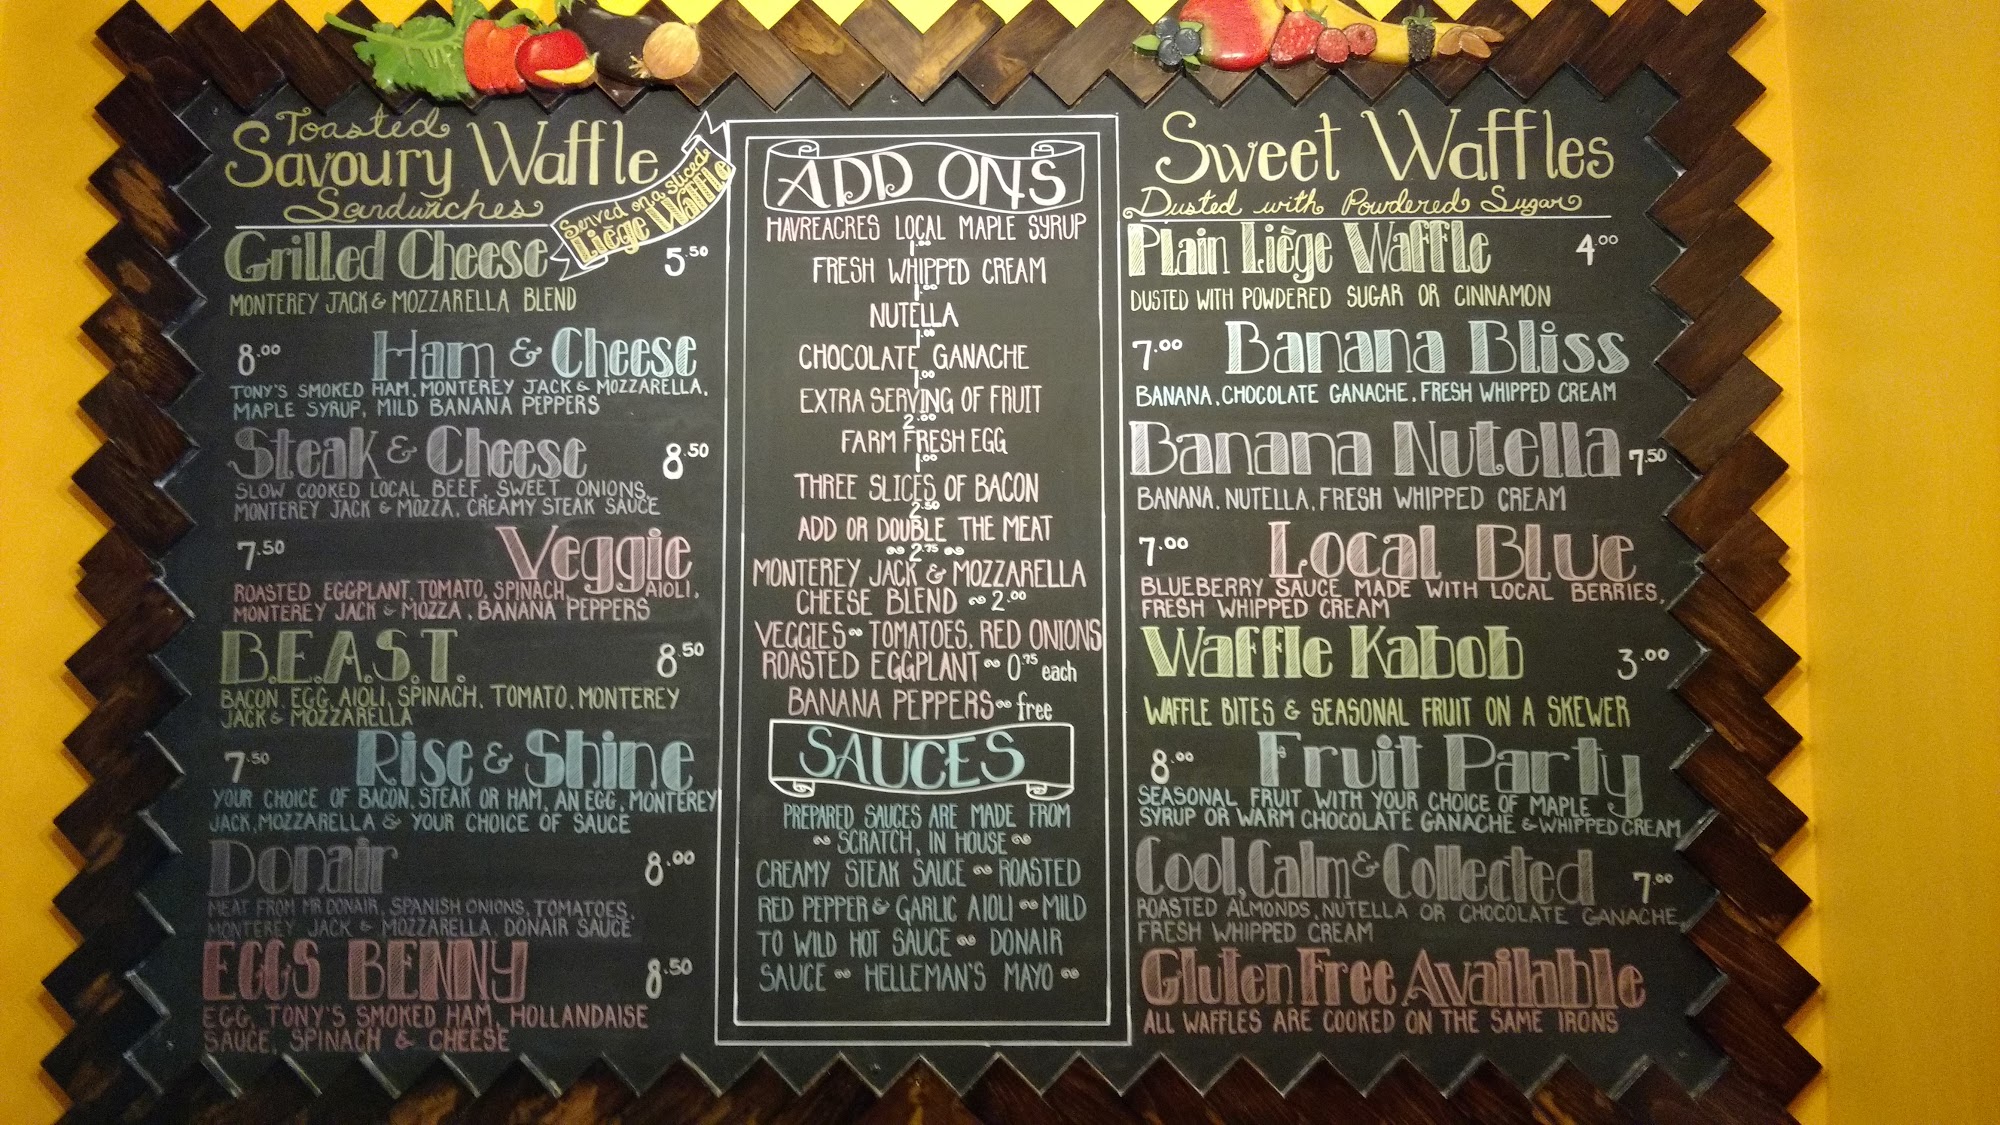 Toasted
Savoury Waffle
Sandwiches
Served on a sliced
Liège Waffle
Grilled Cheese 5.50
MONTEREY JACK & MOZZARELLA BLEND
8.00 Ham & Cheese
TONY'S SMOKED HAM, MONTEREY JACK & MOZZARELLA,
MAPLE SYRUP, MILD BANANA PEPPERS
Steak & Cheese 8.50
SLOW COOKED LOCAL BEEF, SWEET ONIONS,
MONTEREY JACK & MOZZA, CREAMY STEAK SAUCE
7.50 Veggie
ROASTED EGGPLANT, TOMATO, SPINACH, AIOLI,
MONTEREY JACK & MOZZA, BANANA PEPPERS
B.E.A.S.T. 8.50
BACON, EGG, AIOLI, SPINACH, TOMATO, MONTEREY
JACK & MOZZARELLA
7.50 Rise & Shine
YOUR CHOICE OF BACON, STEAK OR HAM, AN EGG, MONTEREY
JACK, MOZZARELLA & YOUR CHOICE OF SAUCE
Donair 8.00
MEAT FROM MR DONAIR, SPANISH ONIONS, TOMATOES,
MONTEREY JACK & MOZZARELLA, DONAIR SAUCE
EGGS BENNY 8.50
EGG, TONY'S SMOKED HAM, HOLLANDAISE
SAUCE, SPINACH & CHEESE
ADD ONS
HAVREACRES LOCAL MAPLE SYRUP
1.00
FRESH WHIPPED CREAM
1.00
NUTELLA
1.00
CHOCOLATE GANACHE
1.00
EXTRA SERVING OF FRUIT
2.00
FARM FRESH EGG
1.00
THREE SLICES OF BACON
2.50
ADD OR DOUBLE THE MEAT
~ 2.75 ~
MONTEREY JACK & MOZZARELLA
CHEESE BLEND ~ 2.00
VEGGIES ~ TOMATOES, RED ONIONS
ROASTED EGGPLANT ~ 0.75 each
BANANA PEPPERS ~ free
SAUCES
PREPARED SAUCES ARE MADE FROM
~ SCRATCH, IN HOUSE ~
CREAMY STEAK SAUCE ~ ROASTED
RED PEPPER & GARLIC AIOLI ~ MILD
TO WILD HOT SAUCE ~ DONAIR
SAUCE ~ HELLEMAN'S MAYO ~
Sweet Waffles
Dusted with Powdered Sugar
Plain Liège Waffle 4.00
DUSTED WITH POWDERED SUGAR OR CINNAMON
7.00 Banana Bliss
BANANA, CHOCOLATE GANACHE, FRESH WHIPPED CREAM
Banana Nutella 7.50
BANANA, NUTELLA, FRESH WHIPPED CREAM
7.00 Local Blue
BLUEBERRY SAUCE MADE WITH LOCAL BERRIES,
FRESH WHIPPED CREAM
Waffle Kabob 3.00
WAFFLE BITES & SEASONAL FRUIT ON A SKEWER
8.00 Fruit Party
SEASONAL FRUIT WITH YOUR CHOICE OF MAPLE
SYRUP OR WARM CHOCOLATE GANACHE & WHIPPED CREAM
Cool, Calm & Collected 7.00
ROASTED ALMONDS, NUTELLA OR CHOCOLATE GANACHE,
FRESH WHIPPED CREAM
Gluten Free Available
ALL WAFFLES ARE COOKED ON THE SAME IRONS